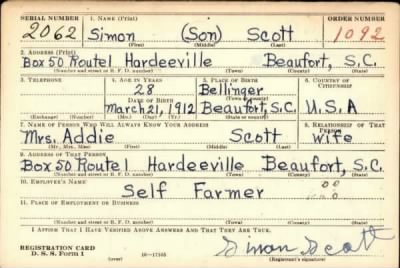 SERIAL NUMBER 1. NAME (Print) ORDER NUMBER
2062 Simon (Son) Scott 1092
(First) (Middle) (Last)
2. ADDRESS (Print)
Box 50 Route 1 Hardeeville Beaufort, S.C.
(Number and street or R. F. D. number) (Town) (County) (State)
3. TELEPHONE 4. AGE IN YEARS 5. PLACE OF BIRTH 6. COUNTRY OF CITIZENSHIP
28 Bellinger
DATE OF BIRTH (Town or county)
March 21, 1912 Beaufort, S.C. U.S.A
(Exchange) (Number) (Mo.) (Day) (Yr.) (State or country)
7. NAME OF PERSON WHO WILL ALWAYS KNOW YOUR ADDRESS 8. RELATIONSHIP OF THAT PERSON
Mrs. Addie Scott wife
(Mr., Mrs., Miss) (First) (Middle) (Last)
9. ADDRESS OF THAT PERSON
Box 50 Route 1 Hardeeville Beaufort, S.C.
(Number and street or R. F. D. number) (Town) (County) (State)
10. EMPLOYER'S NAME
Self Farmer
11. PLACE OF EMPLOYMENT OR BUSINESS
(Number and street or R. F. D. number) (Town) (County) (State)
I AFFIRM THAT I HAVE VERIFIED ABOVE ANSWERS AND THAT THEY ARE TRUE.
REGISTRATION CARD
D. S. S. Form 1 16—17105 Simon Scott
(Registrant's signature)